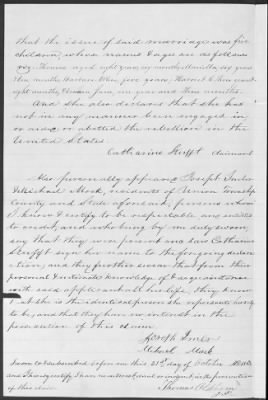 that the issue of said marriage was five
children, whose names & ages are as follows
viz: Thomas aged eight years, six months
five months years, Harriet
eight months, one year and three months.
And she also declares that she has
not in any manner been engaged in
or aided or abetted the rebellion in the
United States.
Catharine Stufft Claimant
Also personally appeared Joseph
& Michael Mock, residents of Union Township
County and State aforesaid, persons whom
I know & certify to be respectable and entitled
to credit, and who being by me duly sworn,
say that they were present and saw Catharine
Stufft sign her name to the foregoing declar
ation, and they further swear that from their
personal & intimate knowledge of & acquaintance
with said applicant all her life, they know
that she is the identical person she represents herself
to be, and that they have no interest in the
prosecution of this claim.
Joseph
Michael Mock
Sworn to & subscribed before me this 21st day of October
and I hereby certify I have no interest, direct or indirect, in the prosecution
of this claim.
Thomas